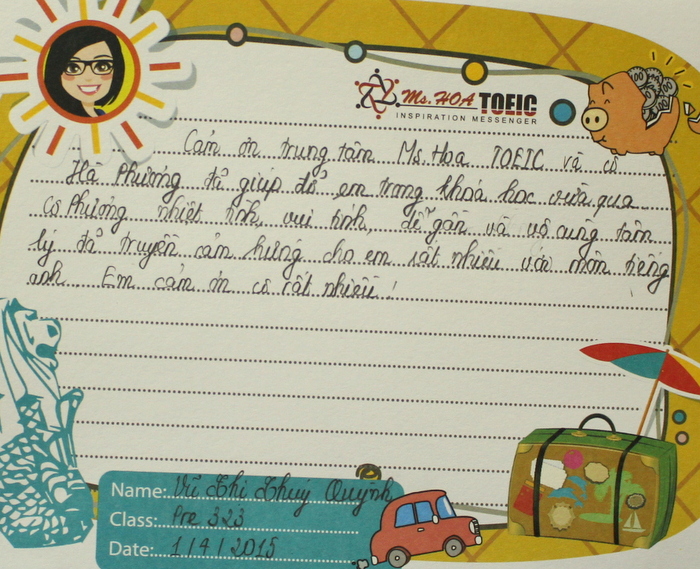 Ms. HOA TOEIC
INSPIRATION MESSENGER
Cảm ơn trung tâm Ms Hoa TOEIC và cô
Hà Phương đã giúp đỡ em trong khoá học vừa qua
Cô Phương nhiệt tình, vui tính, dễ gần và vô cùng tâm
lý đã truyền cảm hứng cho em rất nhiều với môn tiếng
anh. Em cảm ơn cô rất nhiều!
Name: Vũ Thị Thuy Quỳnh
Class: Pre 323
Date: 1/4/2015